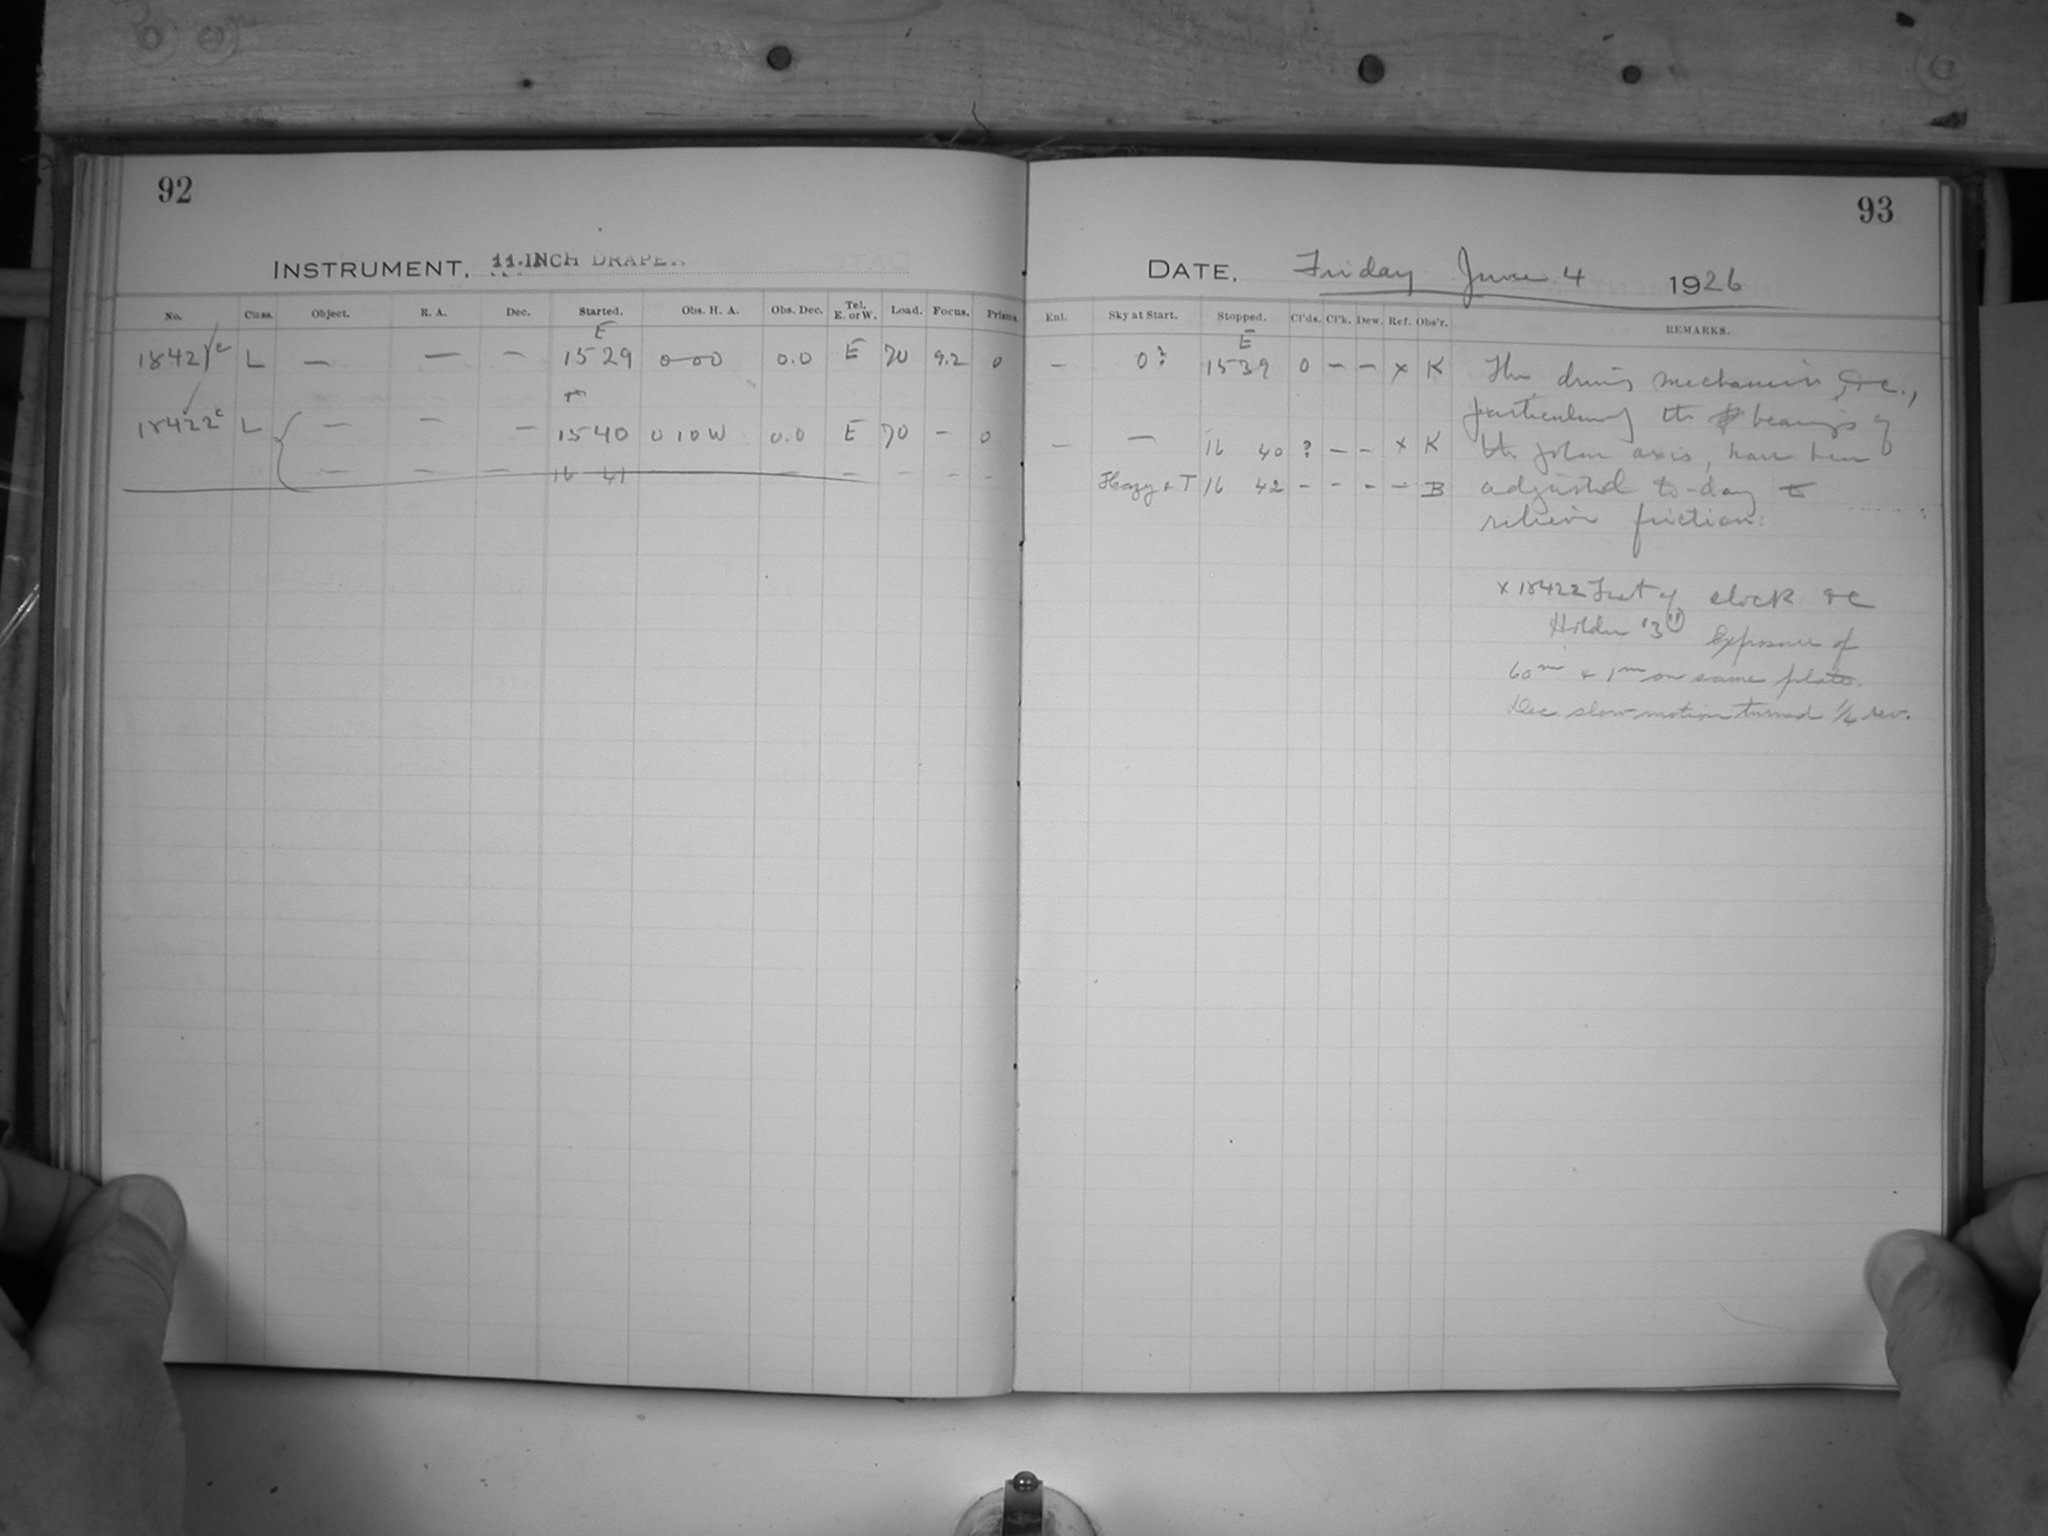 92
93
INSTRUMENT, 11-INCH DRAPER
DATE, Friday June 4 1926
No. Class. Object. R. A. Dec. Started. Obs. H. A. Obs. Dec. Tel. E. or W. Load. Focus. Prisms.
Enl. Sky at Start. Stopped. Cl'ds. Cl'k. Dew. Ref. Obs'r. REMARKS.
E
E
18421c L — — — 15 29 0-00 0.0 E 70 9.2 0
— 0? 15 39 0 — — x K
18422c L — — — 15 40 0 10 W 0.0 E 70 — 0
— — 16 40 ? — — x K
— — — 16 41 — — — — — —
Hazy + T 16 42 - - - - B
The driving mechanism, &c.,
particularly the bearings of
the polar axis, have been
adjusted to-day to
relieve friction.
x 18422 Test of clock &c
Holder "3" Exposure of
60m + 1m on same plate.
Dec slow motion turned 1/4 rev.